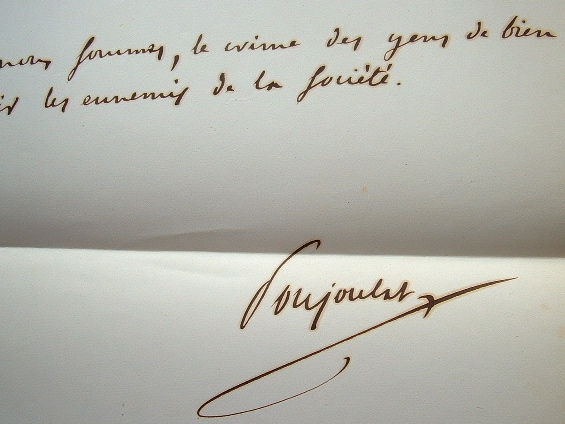 nous sommes, le crime des gens de bien
les ennemis de la Société.
Poujoulat